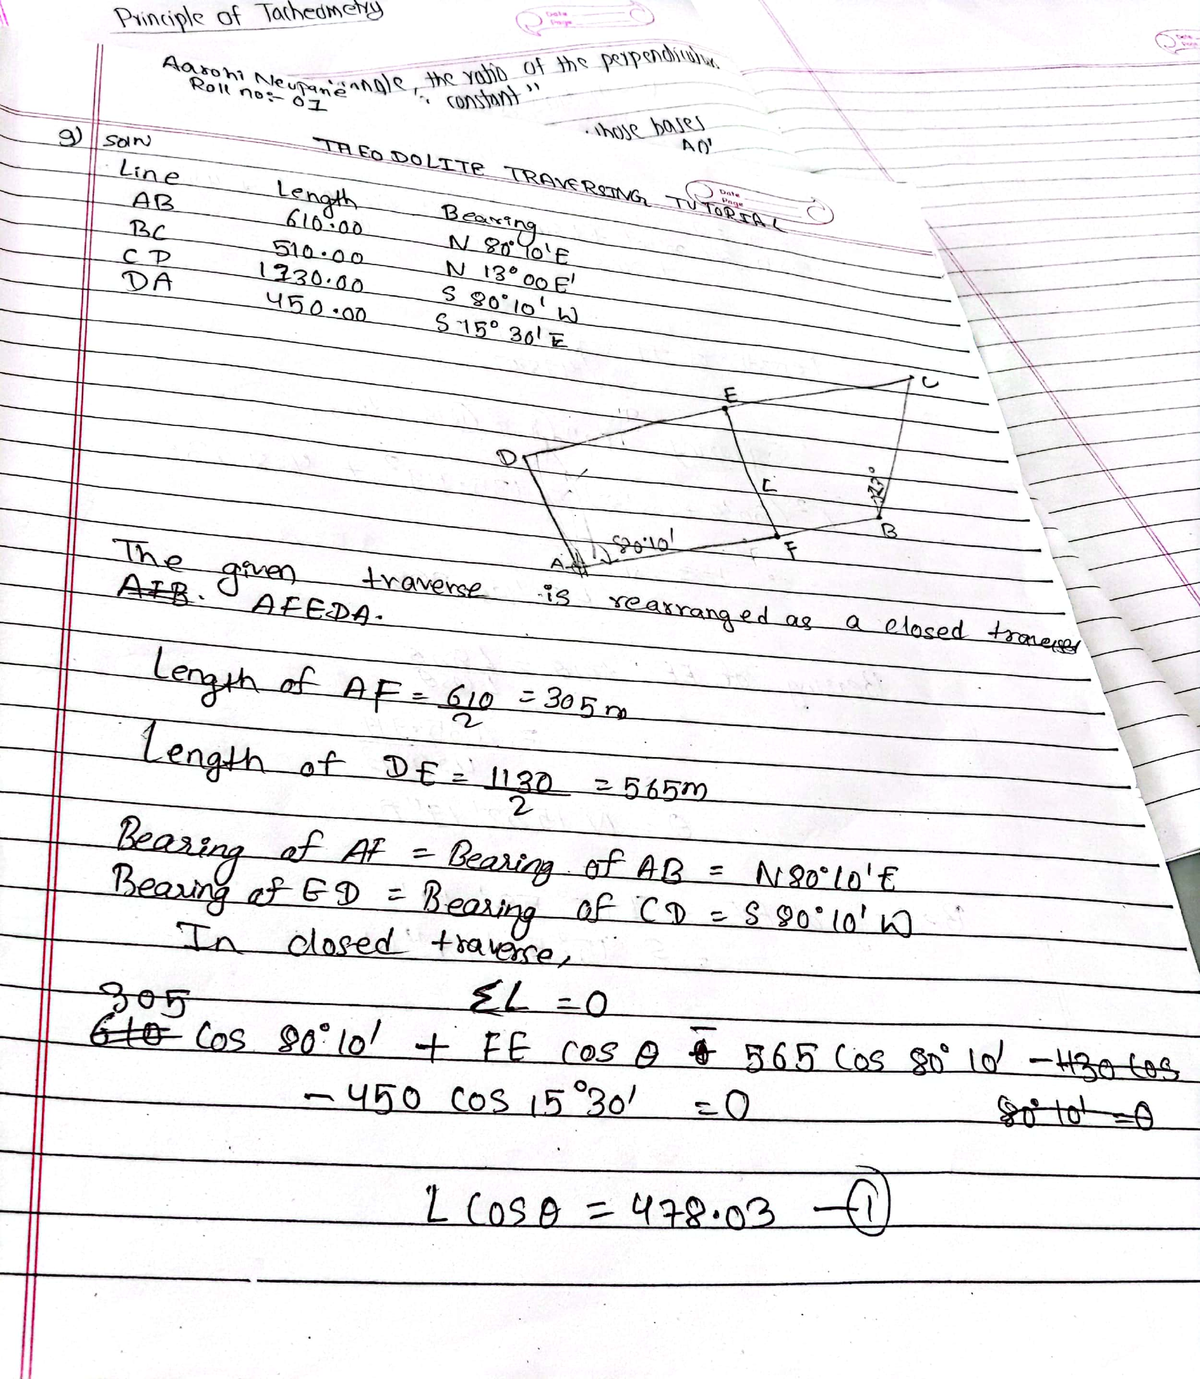 Principle of Tacheometry
Aarohi Neupane angle, the ratio of the perpendicular
Roll no:- 01 constant"
whose bases
THEODOLITE TRAVERSING TUTORIAL
Date
Page
9) Soln
Line Length Bearing
AB 610.00 N 80°10'E
BC 510.00 N 13°00E'
CD 1130.00 S 80°10' W
DA 450.00 S 15° 30' E
D E C
L
A 80°10' F B
The given traverse is rearranged as a closed traverse
AFEDA.
Length of AF = 610/2 = 305m
Length of DE = 1130/2 = 565m
Bearing of AF = Bearing of AB = N80°10'E
Bearing of ED = Bearing of CD = S 80°10' W
In closed traverse,
ΣL = 0
305 cos 80°10' + FE cos θ - 565 cos 80° 10'
- 450 cos 15°30' = 0
L cos θ = 478.03 —①